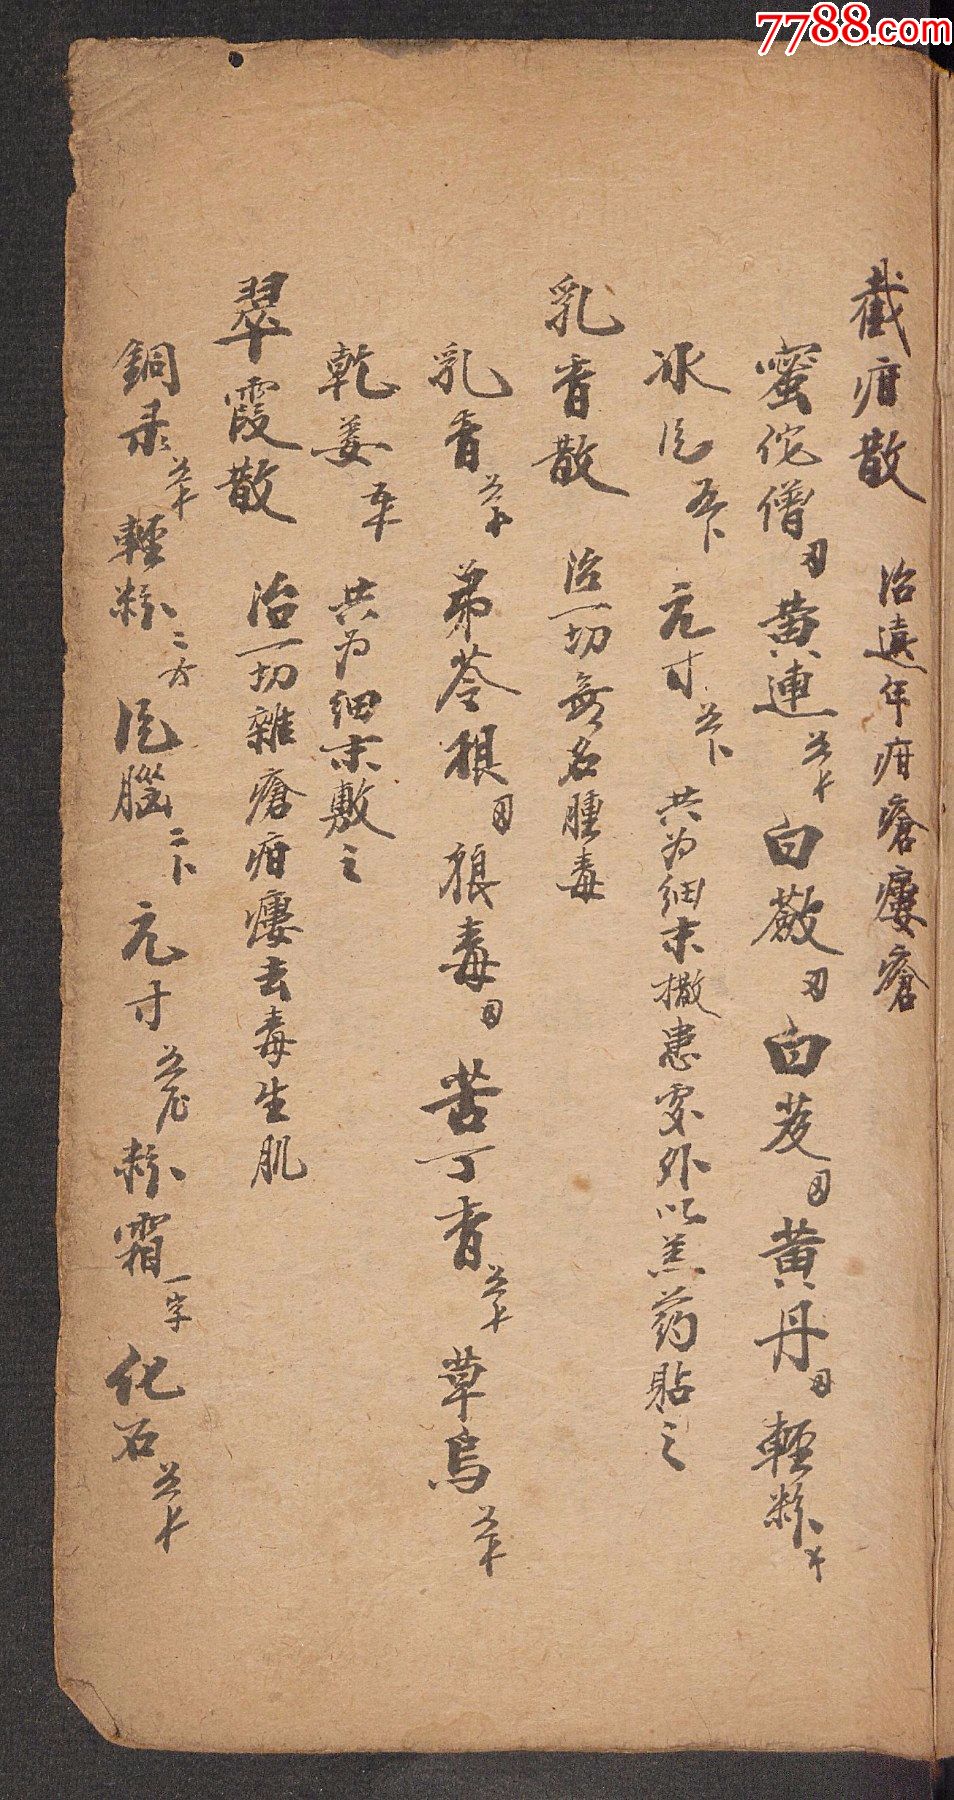 7788.com
截疳散 治遠年疳瘡瘻瘡
蜜佗僧 黄連 白蔹 白芨 黄丹 輕粉
冰片 元寸 共为细末撒患处外以羔药貼之
乳香散 治一切無名腫毒
乳香 苐苓根 狼毒 苦丁香 草烏
乾姜 共为细末敷之
翠霞散 治一切雜瘡疳瘻去毒生肌
銅录 輕粉 片腦 元寸 粉霜一字 化石